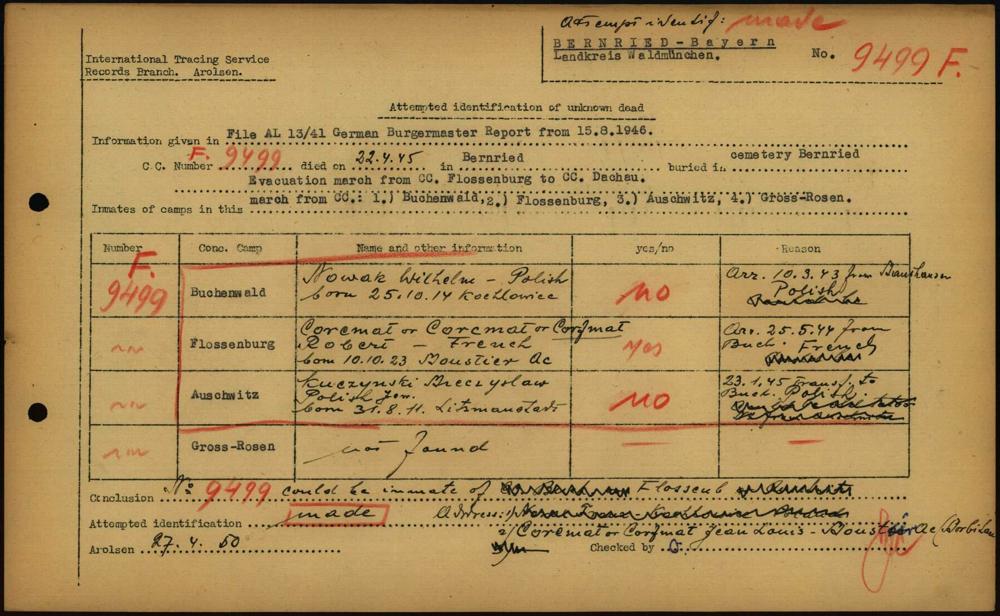 Attempt identif: made
BERNRIED-Bayern
Landkreis Waldmünchen.
No. 9499 F.
International Tracing Service
Records Branch. Arolsen.
Attempted identification of unknown dead
Information given in File AL 13/41 German Burgermaster Report from 15.8.1946.
C.C. Number F. 9499 died on 22.4.45 in Bernried buried in cemetery Bernried
Evacuation march from CC. Flossenburg to CC. Dachau.
Inmates of camps in this march from CC.: 1.) Buchenwald, 2.) Flossenburg, 3.) Auschwitz, 4.) Gross-Rosen.
Number Conc. Camp Name and other information yes/no Reason
F. 9499 Buchenwald Nowak Wilhelm - Polish born 25.10.14 Kochlowice no Arr. 10.3.43 from Polish
Flossenburg Coremat or Coremat or Corfmat Robert - French born 10.10.23 Moustier Ac yes Arr. 25.5.44 from Buch. French
Auschwitz Kuczynski Mieczyslaw Polish Jew. born 31.8.11. Litzmanstadt no 23.1.45 transf. to Buch. Polish.
Gross-Rosen not found
Conclusion No 9499 could be inmate of Flossenb
Attempted identification made Address:
2/ Coremat or Corfmat Jean Louis - Ac
Arolsen 27.4.50 Checked by